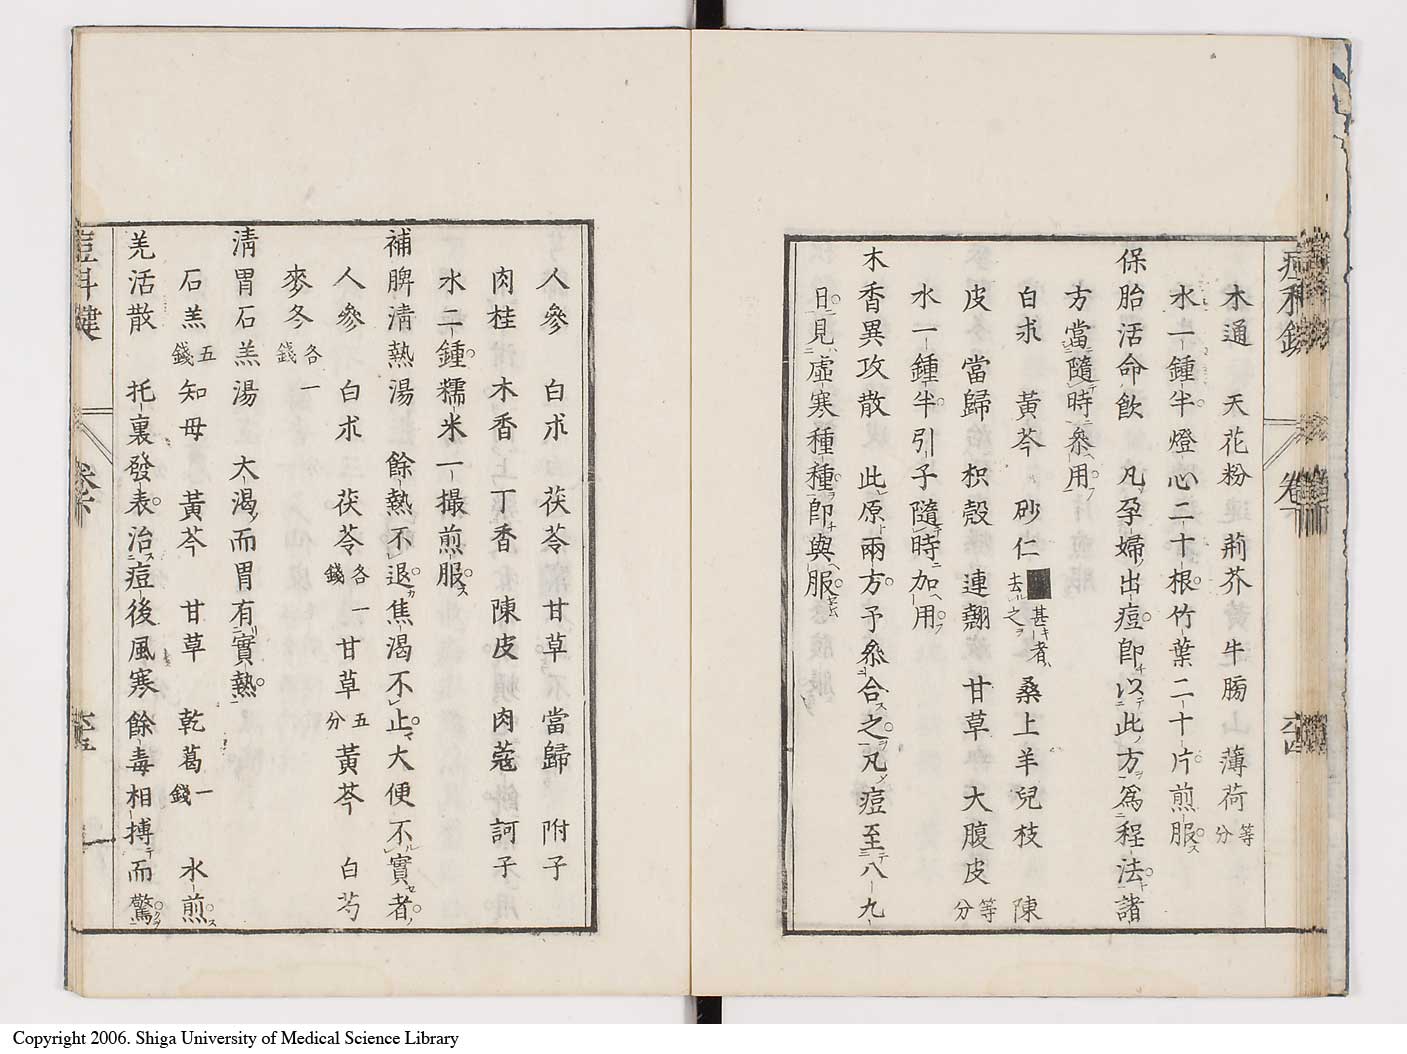 木通　天花粉　荊芥　牛蒡　薄荷等分
水一鍾半燈心二十根竹葉二十片煎服
保胎活命飲　凡孕婦出痘卽以此方爲程法諸
方當隨時叅用
白朮　黃芩　砂仁甚者去之　桑上羊兒枝　陳
皮　當歸　枳殼　連翹　甘草　大腹皮等分
水一鍾半引子隨時加用
木香異攻散　此原兩方予叅合之凡痘至八九
日見虛寒種種卽與服
人參　白朮　茯苓　甘草　當歸　附子
肉桂　木香　丁香　陳皮　肉蔻　訶子
水二鍾糯米一撮煎服
補脾淸熱湯　餘熱不退焦渴不止大便不實者
人參　白朮　茯苓各一錢　甘草五分　黃芩　白芍
麥冬各一錢
淸胃石羔湯　大渴而胃有實熱
石羔五錢　知母　黃芩　甘草　乾葛一錢　水煎
羌活散　托裏發表治痘後風寒餘毒相搏而驚
痘科鍵
卷下
Copyright 2006. Shiga University of Medical Science Library